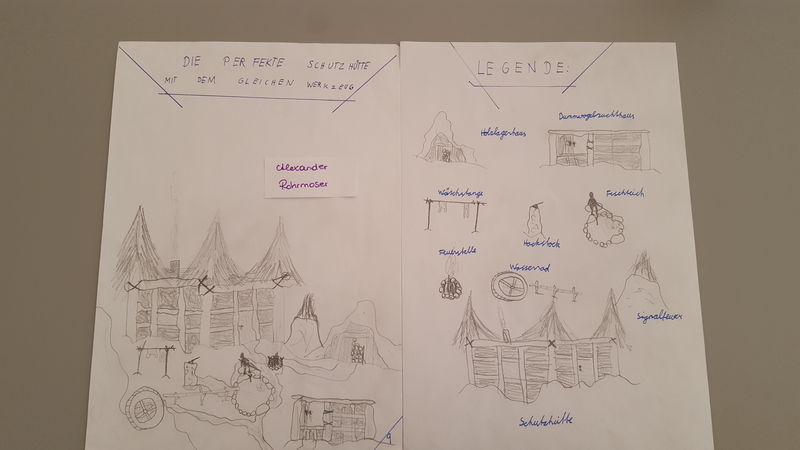 DIE PERFEKTE SCHUTZHÜTTE
MIT DEM GLEICHEN WERKZEUG
Alexander
Rohrmoser
9
LEGENDE:
Holzlagerhaus
Dummvogelzuchthaus
Wäschstange
Hackstock
Fischteich
Feuerstelle
Wasserrad
Signalfeuer
Schutzhütte